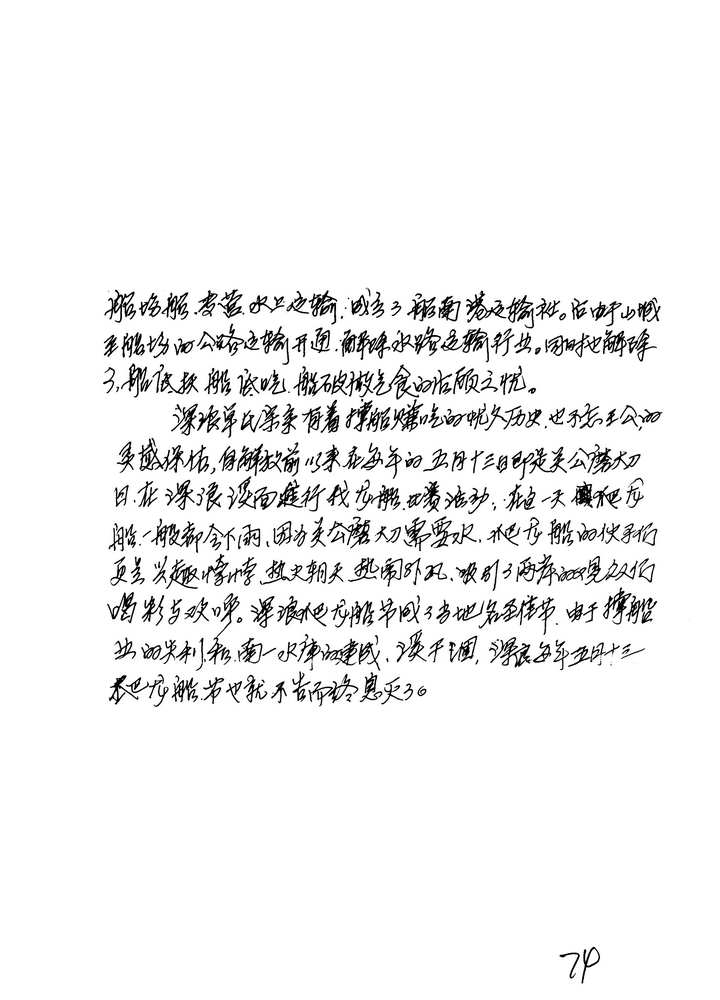 船坞船专营水上运输,成立了船南港运输社。后由于山城
至船场的公路运输开通,解除水路运输行业。同时也解除
了,船底扒船底吃,船破做乞食的后顾之忧。
深浪单氏宗亲有着撑船赚吃的悠久历史,也不忘王公的
灵感保佑,自解放前以来在每年的五月十三日即是关公磨大刀
日,在深浪溪面进行扒龙船比赛活动,在这一天爬龙
船一般都会下雨,因为关公磨大刀需要水,爬龙船的伙子们
更是兴趣悖悖,热火朝天,热闹非凡,吸引了两岸的观众们
喝彩与欢呼。深浪爬龙船节成了当地名至佳节,由于撑船
业的失利,和南一水库的建成,溪干涸,深浪每年五月十三
爬龙船节也就不告而终息灭了。
74